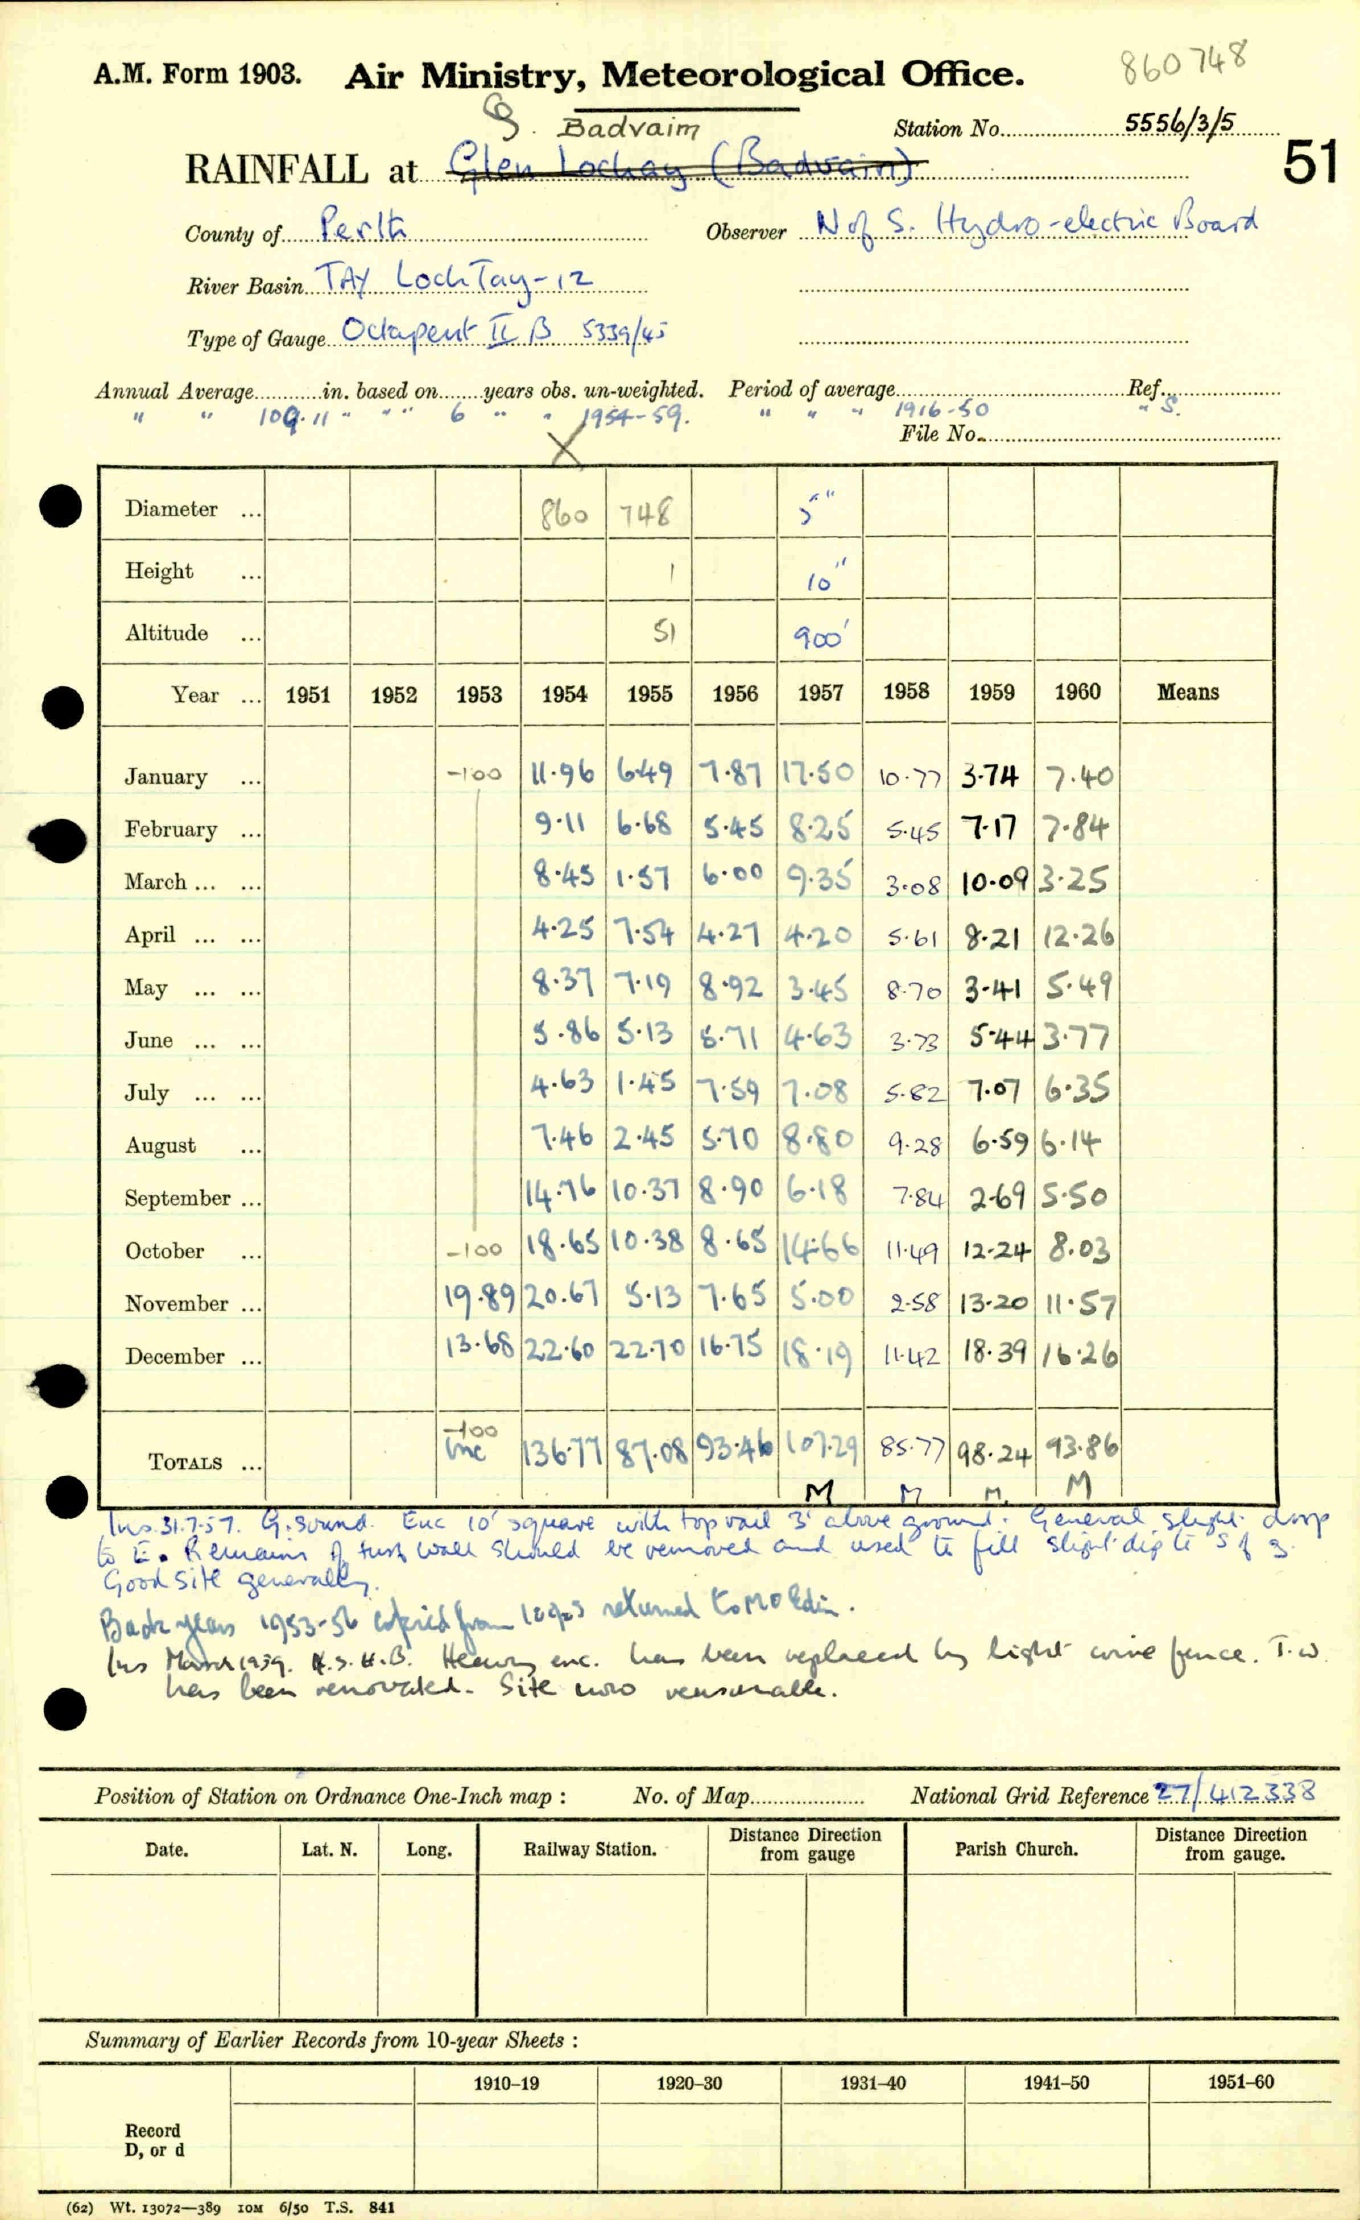 860748
A.M. Form 1903. Air Ministry, Meteorological Office.
Badvaim
Station No. 5556/3/5
51
RAINFALL at Glen Lochay (Badvaim)
County of Perth Observer N of S. Hydro-electric Board
River Basin TAY Loch Tay-12
Type of Gauge Octapent II B 5339/45
Annual Average in. based on years obs. un-weighted. Period of average Ref.
" " 109.11 " " " 6 " " 1954-59. " " " 1916-50 " S.
File No.
X
Diameter ... 860 748 5"
Height ... 1 10"
Altitude ... 51 900'
Year ... 1951 1952 1953 1954 1955 1956 1957 1958 1959 1960 Means
January ... -100 11.96 6.49 7.87 17.50 10.77 3.74 7.40
February ... 9.11 6.68 5.45 8.25 5.45 7.17 7.84
March ... ... 8.45 1.57 6.00 9.35 3.08 10.09 3.25
April ... ... 4.25 7.54 4.27 4.20 5.61 8.21 12.26
May ... ... 8.37 7.19 8.92 3.45 8.70 3.41 5.49
June ... ... 5.86 5.13 5.71 4.63 3.73 5.44 3.77
July ... ... 4.63 1.45 7.59 7.08 5.82 7.07 6.35
August ... 7.46 2.45 5.70 8.80 9.28 6.59 6.14
September ... 14.76 10.37 8.90 6.18 7.84 2.69 5.50
October ... -100 18.65 10.38 8.65 14.66 11.49 12.24 8.03
November ... 19.89 20.67 5.13 7.65 5.00 2.58 13.20 11.57
December ... 13.68 22.60 22.70 16.75 18.19 11.42 18.39 16.26
-100
TOTALS ... inc 136.77 87.08 93.46 107.29 85.77 98.24 93.86
M M M. M
Ins. 31.7.57. G. sound. Enc 10' square with top rail 3' above ground. General slight drop
to E. Remains of turf wall should be removed and used to fill slight dip to S of g.
Good site generally.
Back years 1953-56 copied from returned to MO Edin.
Ins March 1959. H.S.H.B. Heavy enc. has been replaced by light wire fence. T.W.
has been renovated. Site now reasonable.
Position of Station on Ordnance One-Inch map : No. of Map National Grid Reference 27/412338
Date. Lat. N. Long. Railway Station. Distance Direction from gauge Parish Church. Distance Direction from gauge.
Summary of Earlier Records from 10-year Sheets :
1910–19 1920–30 1931–40 1941–50 1951–60
Record
D, or d
(62) Wt. 13072—389 10M 6/50 T.S. 841